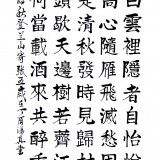 白雲裡隱者自怡悅
高心隨雁飛滅愁因
是清秋發時見歸村
頭歇天邊樹若薺江
何當載酒來共醉重
秋登蘭山寄張五歲在丁酉